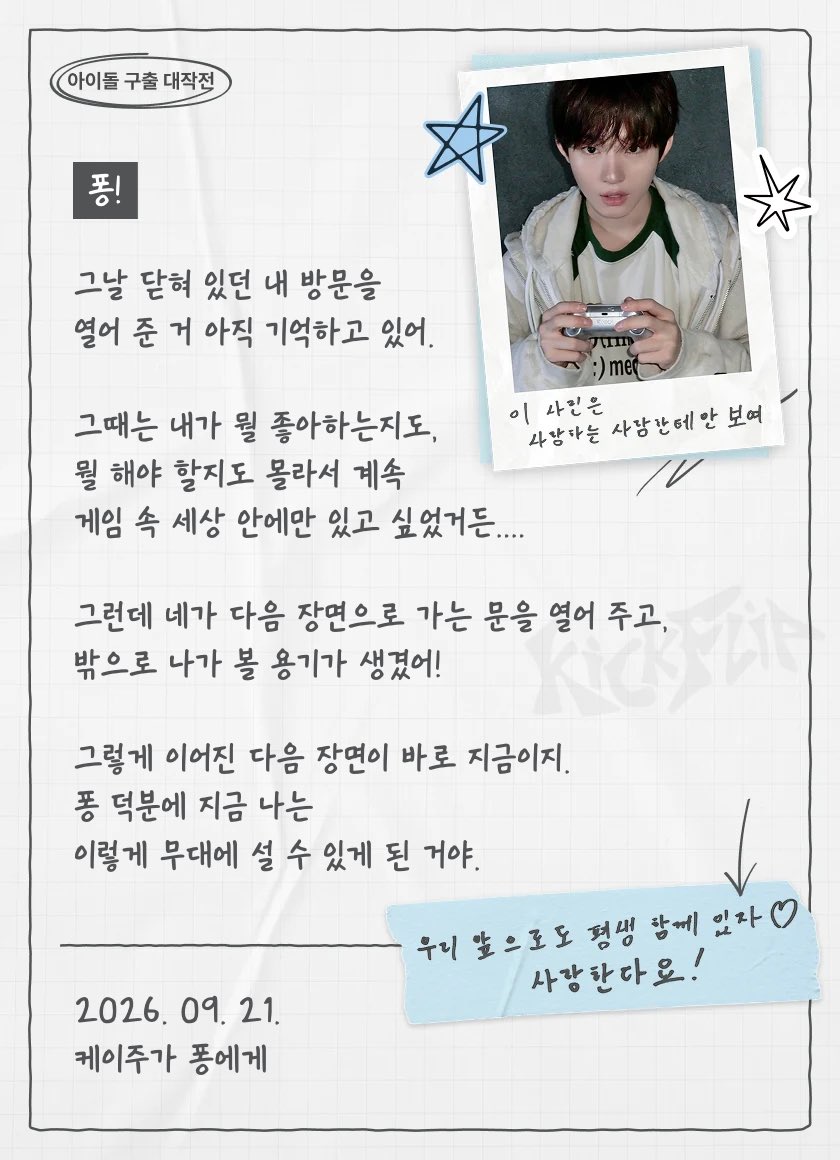 아이돌 구출 대작전
퐁!
그날 닫혀 있던 내 방문을
열어 준 거 아직 기억하고 있어.
그때는 내가 뭘 좋아하는지도,
뭘 해야 할지도 몰라서 계속
게임 속 세상 안에만 있고 싶었거든....
그런데 네가 다음 장면으로 가는 문을 열어 주고,
밖으로 나가 볼 용기가 생겼어!
그렇게 이어진 다음 장면이 바로 지금이지.
퐁 덕분에 지금 나는
이렇게 무대에 설 수 있게 된 거야.
2026. 09. 21.
케이주가 퐁에게
이 사진은
사랑하는 사람한테 안 보여
:) med
KickFlip
우리 앞으로도 평생 함께 있자♡
사랑한다요!